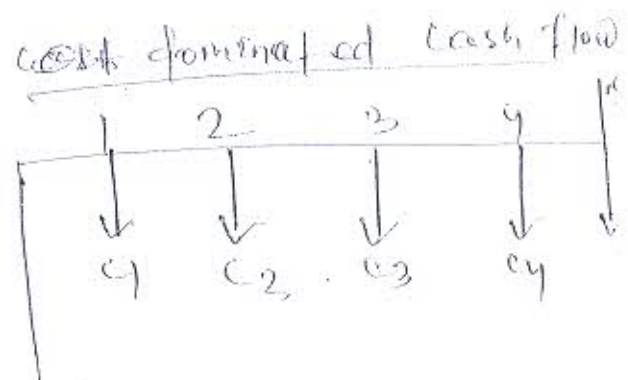 cost dominated cash flow
1 2 3 4 n
c1 c2 . c3 c4